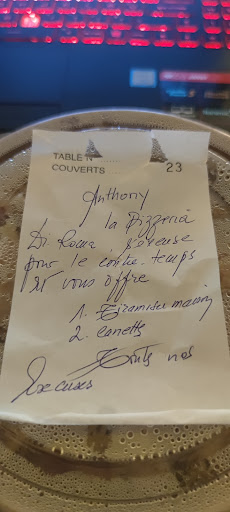 TABLE N°
COUVERTS
23
Anthony
la Pizzeria
Di Roma s'excuse
pour le contre-temps
et vous offre
1. Tiramisu maison
2. Canette
Touts nos
Excuses